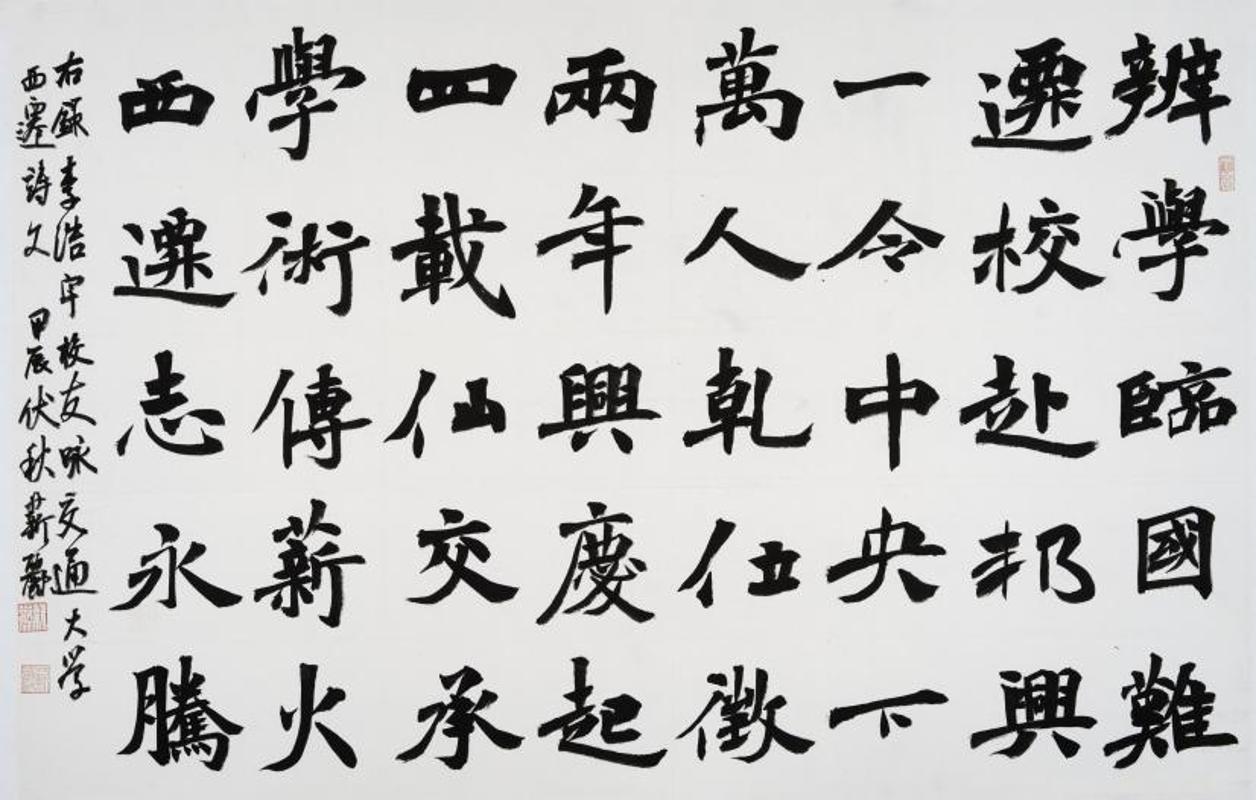 辦學臨國難
遷校赴邦興
一令中央下
萬人乾伍徵
兩年興慶起
四載仙交承
學術傳薪火
西遷志永騰
右錄李浩宇校友咏交通大学
西遷詩文 甲辰伏秋薪麗